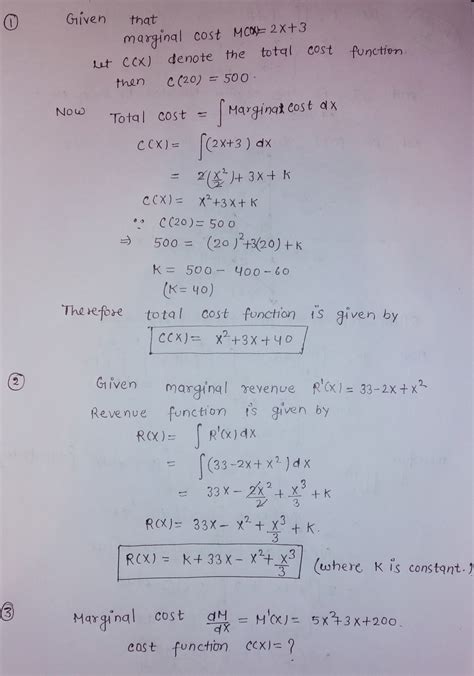 ① Given that
marginal cost MC(x) = 2x+3
Let C(x) denote the total cost function
then C(20) = 500.
Now Total cost = ∫ Marginal cost dx
C(x) = ∫(2x+3) dx
= 2(x²/2) + 3x + K
C(x) = x²+3x+K
∵ C(20) = 500
⇒ 500 = (20)²+3(20)+K
K = 500 - 400 - 60
(K = 40)
Therefore total cost function is given by
C(x) = x²+3x+40
② Given marginal revenue R'(x) = 33-2x+x²
Revenue function is given by
R(x) = ∫ R'(x) dx
= ∫(33-2x+x²) dx
= 33x - 2x²/2 + x³/3 + K
R(x) = 33x - x² + x³/3 + K.
R(x) = K+33x - x² + x³/3 (where K is constant.)
③ Marginal cost dM/dx = M'(x) = 5x²+3x+200.
cost function C(x) = ?